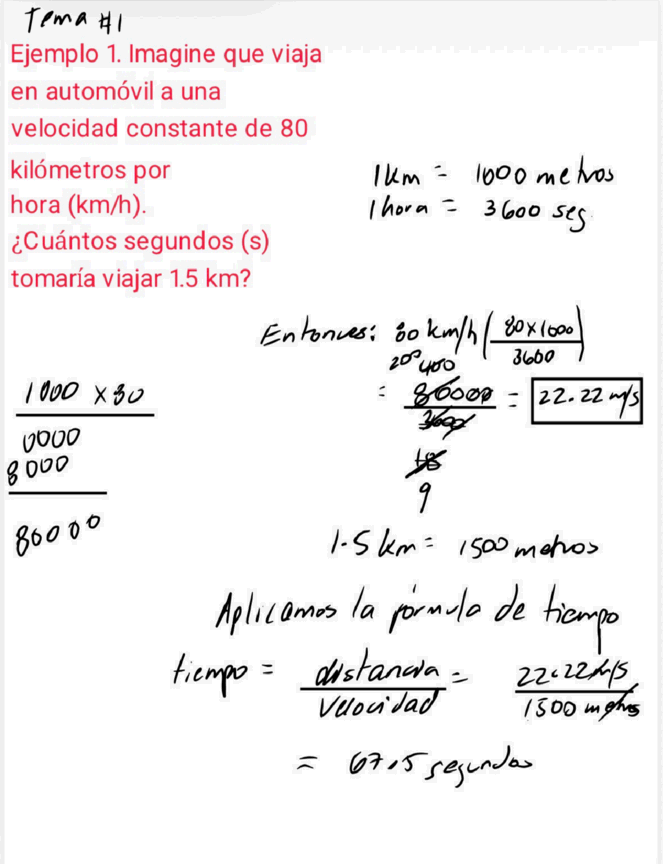 Tema #1
Ejemplo 1. Imagine que viaja
en automóvil a una
velocidad constante de 80
kilómetros por
hora (km/h).
¿Cuántos segundos (s)
tomaría viajar 1.5 km?
1km = 1000 metros
1 hora = 3600 seg.
Entonces: 80 km/h (80x1000/3600)
200 400
= 80000/3600 = 22.22 m/s
18
9
1000 x 80
0000
8000
80000
1.5 km = 1500 metros
Aplicamos la fórmula de tiempo
tiempo = distancia/Velocidad = 22.22 m/s/1500 metros
= 67.5 segundos